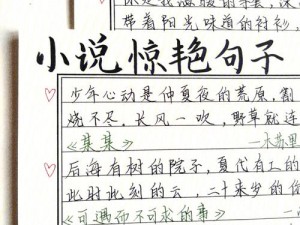 你是我温暖的手套,冰
带着阳光味道的衬衫,
小说惊艳句子
少年心动是仲夏夜的荒原,割
烧不尽.长风一吹,野草就连
《某某》 —木苏里
后海有树的院子,夏代有工的
此时此刻的云,二十来岁的
《可遇而不可求的事》